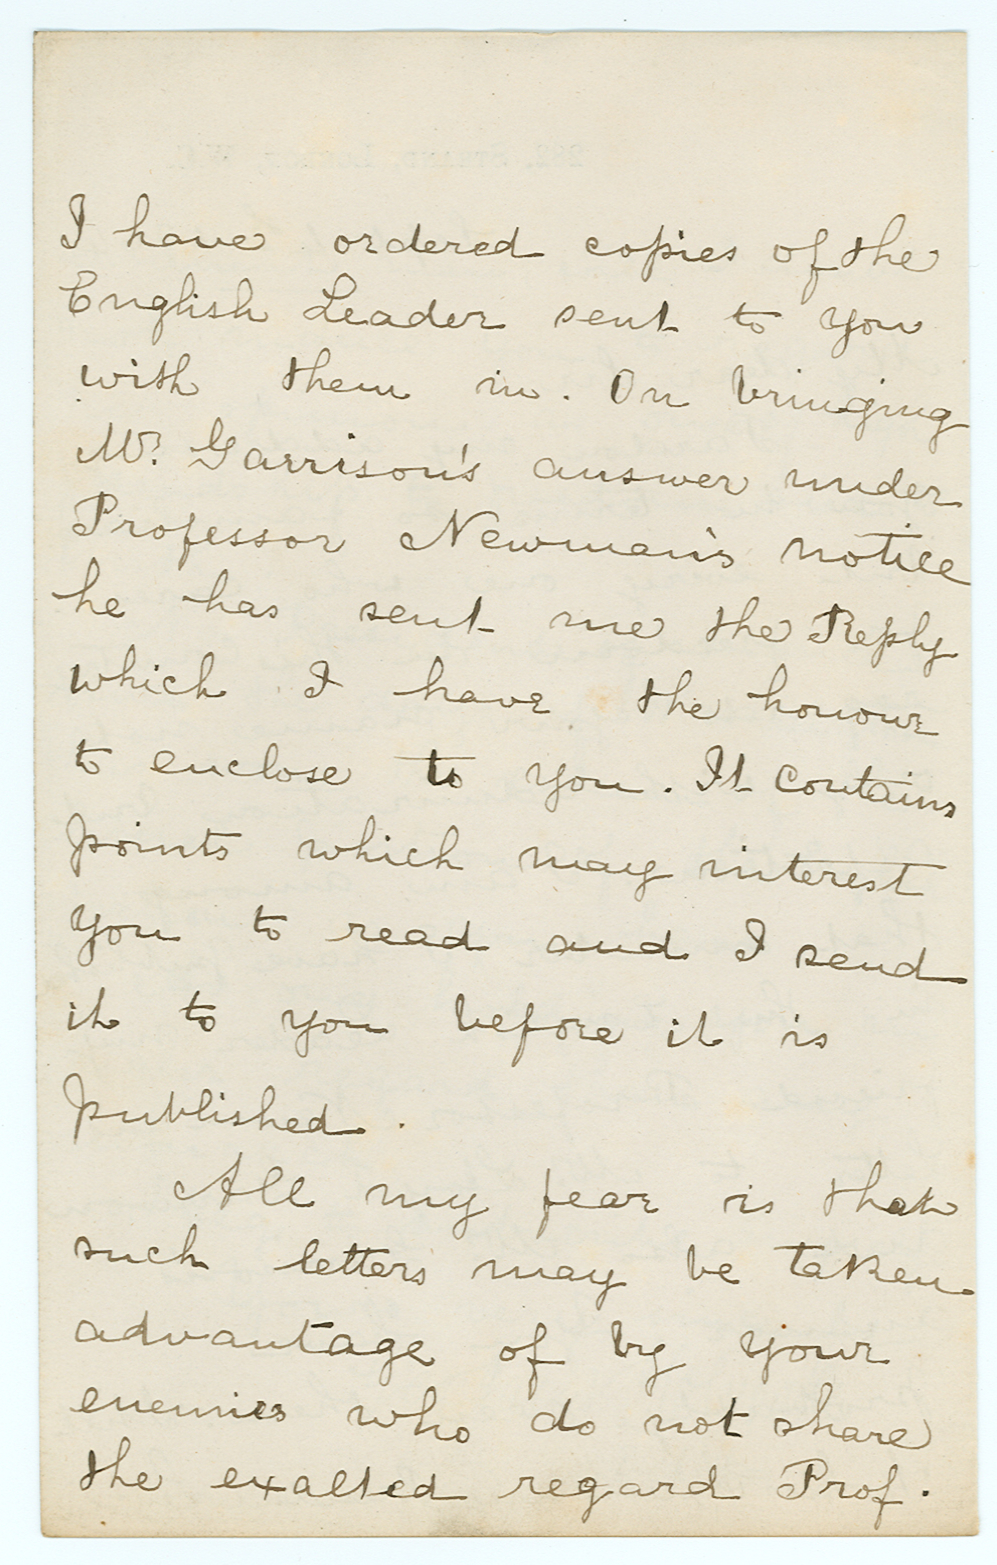 I have ordered copies of the
English Leader sent to you
with them in. On bringing
Mr. Garrison's answer under
Professor Newman's notice
he has sent me the Reply
which I have the honour
to enclose to you. It contains
points which may interest
you to read and I send
it to you before it is
published.
All my fear is that
such letters may be taken
advantage of by your
enemies who do not share
the exalted regard Prof.